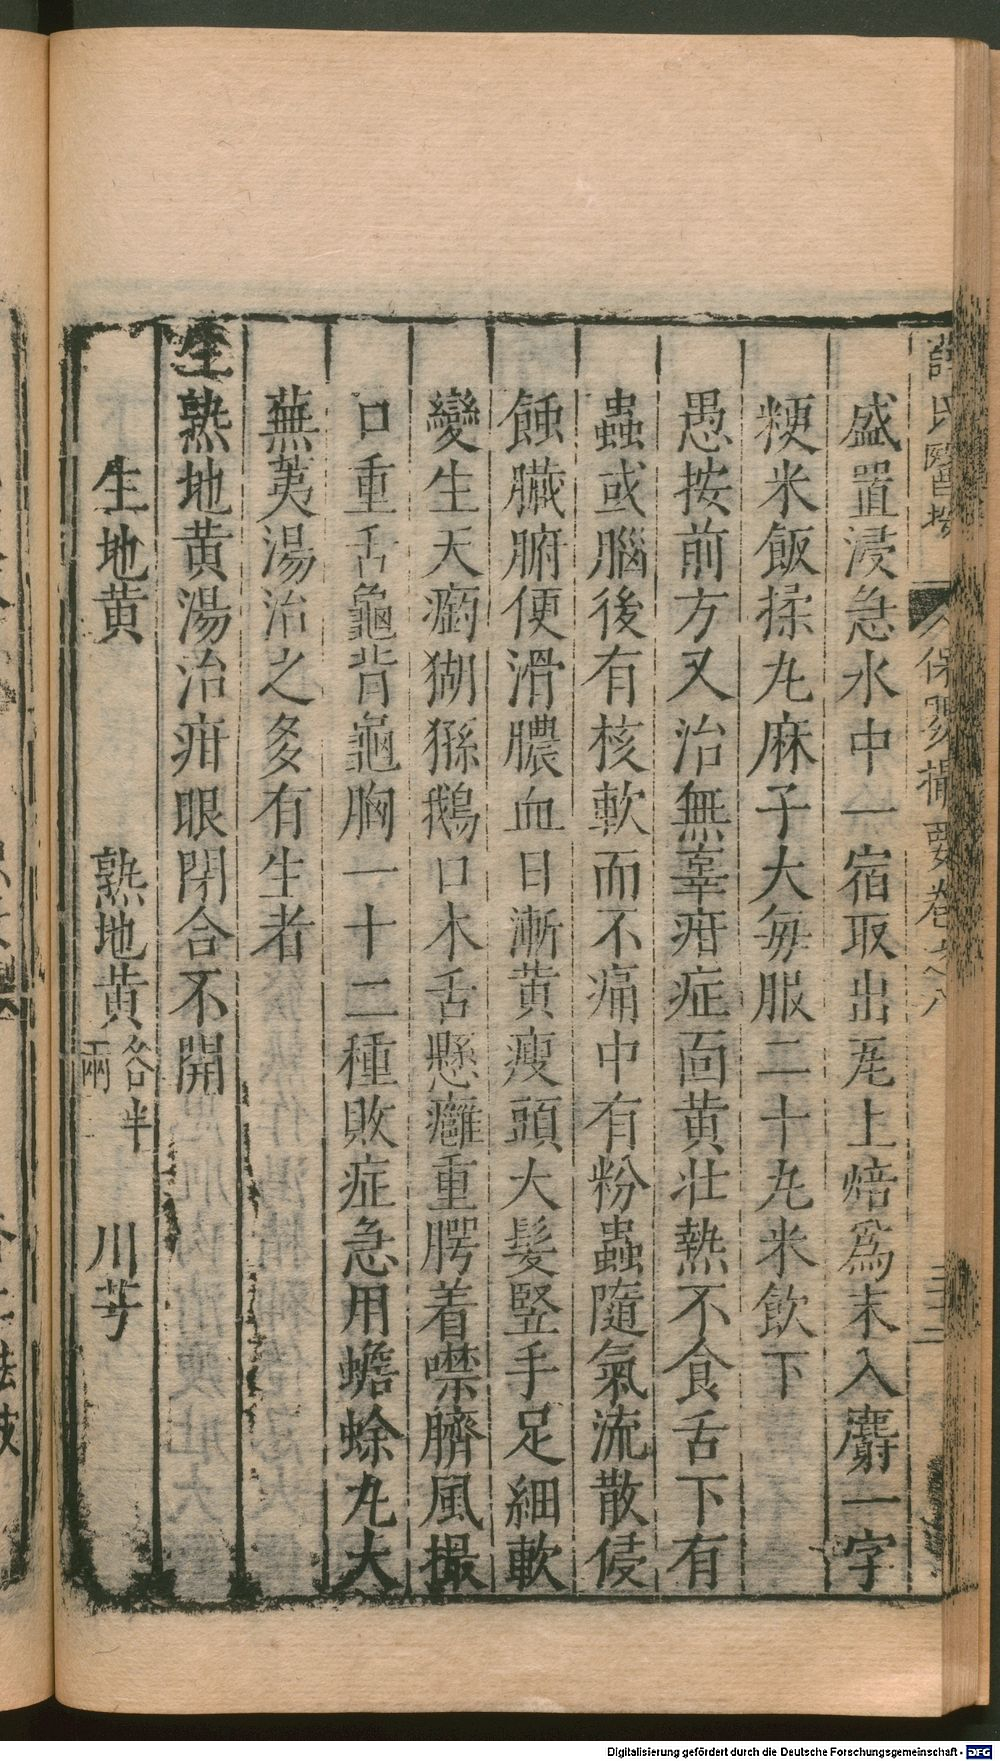 薛氏醫按 保嬰撮要卷之八 三三
盛置浸急水中一宿取出瓦上焙爲末入麝一字
粳米飯揉丸麻子大每服二十丸米飲下
愚按前方又治無辜疳症面黄壯熱不食舌下有
蟲或腦後有核軟而不痛中有粉蟲隨氣流散侵
蝕臟腑便滑膿血日漸黄瘦頭大髮竪手足細軟
變生天瘹猢猻鵝口木舌懸癰重腭着噤臍風撮
口重舌龜背龜胸一十二種敗症急用蟾蜍丸大
蕪荑湯治之多有生者
生熟地黄湯治疳眼閉合不開
生地黄 熟地黄各半兩 川芎
Digitalisierung gefördert durch die Deutsche Forschungsgemeinschaft - DFG